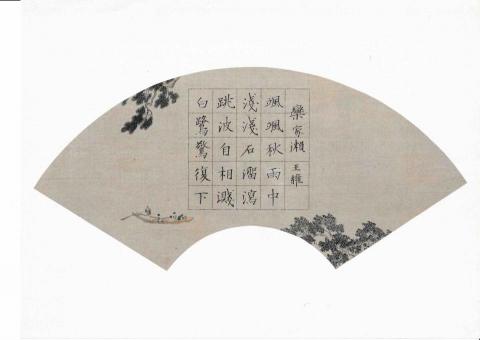 欒家瀨 王維
颯颯秋雨中
淺淺石溜瀉
跳波自相濺
白鷺驚復下